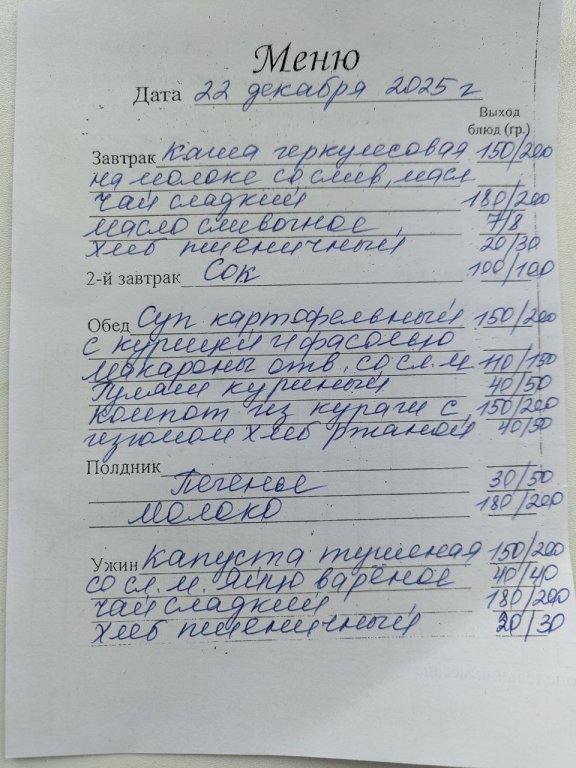 Меню
Дата 22 декабря 2025 г
Выход
блюд (гр.)
Завтрак Каша геркулесовая 150/200
на молоке со слив, масл
чай сладкий 180/200
масло сливочное 7/8
хлеб пшеничный 20/30
2-й завтрак Сок 100/100
Обед Суп картофельный 150/200
с курицей и фасолью
макароны отв. со сл. м 110/150
Гуляш куриный 40/50
компот из кураги с 150/200
изюмом хлеб ржаной 40/50
Полдник
Печенье 30/50
молоко 180/200
Ужин капуста тушеная 150/200
со сл. м. яйцо варёное 40/40
чай сладкий 180/200
хлеб пшеничный 20/30